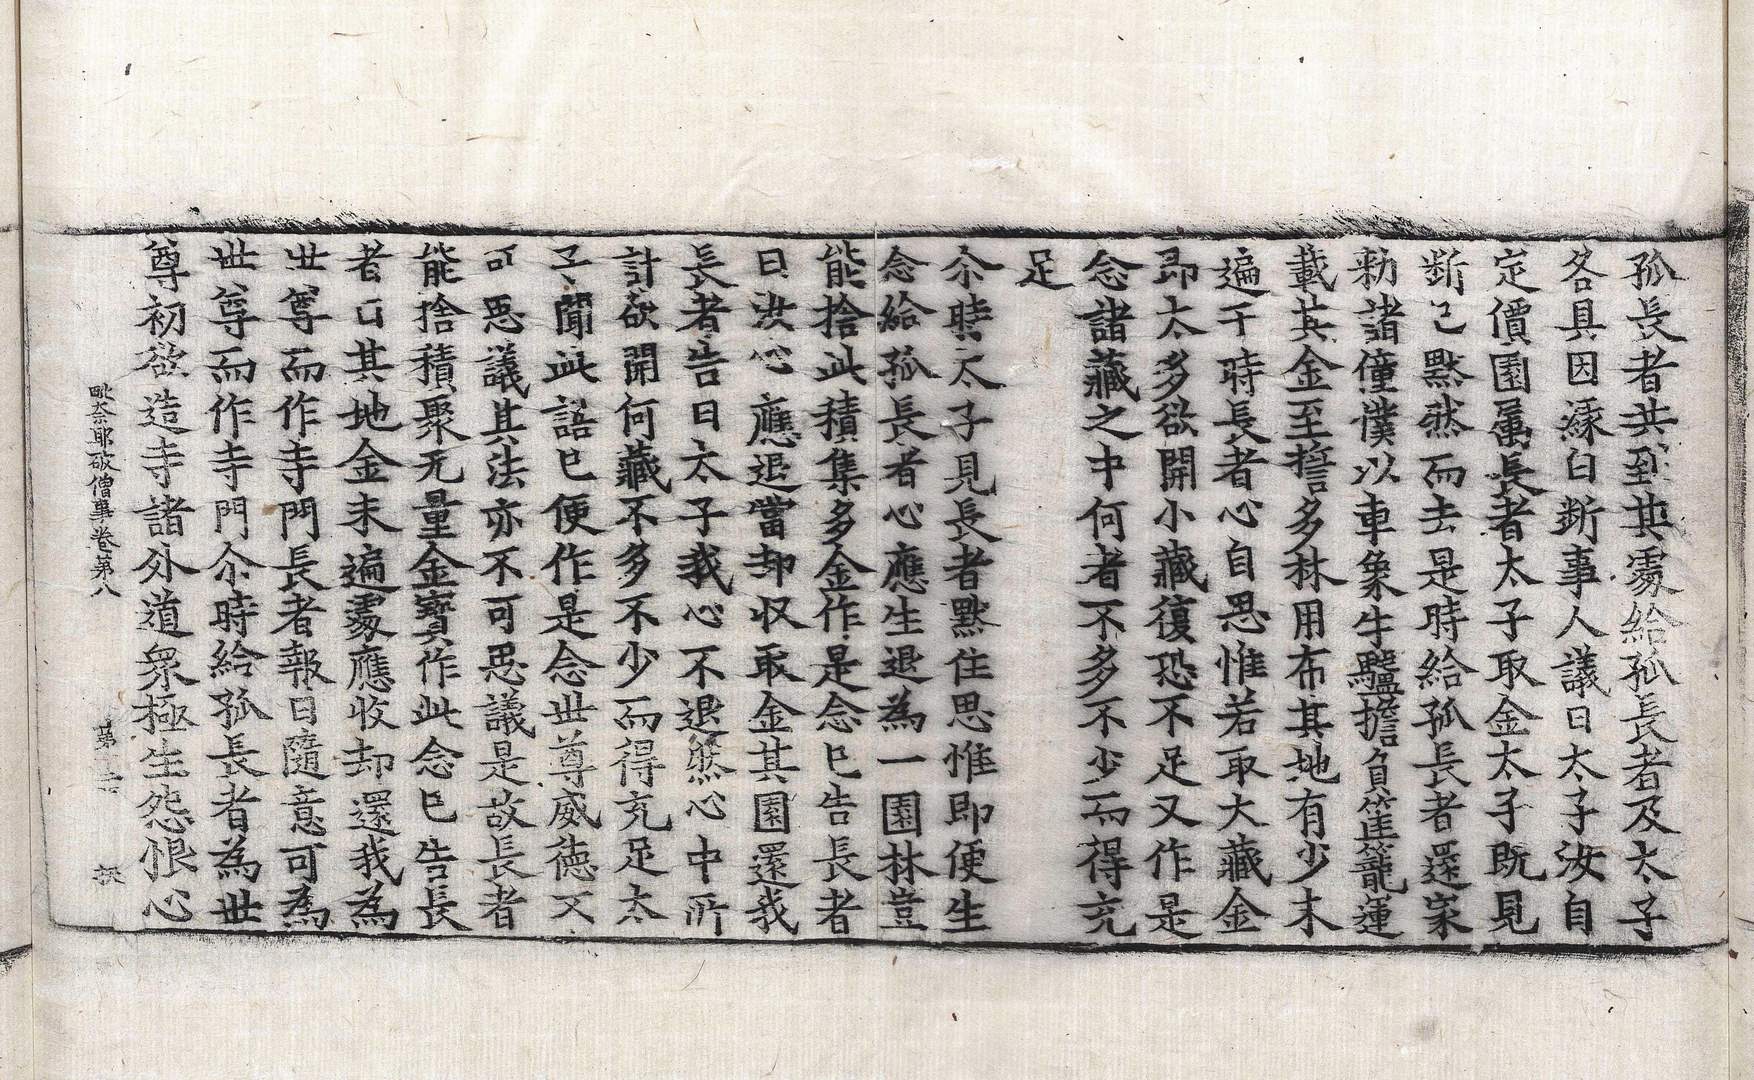 孤長者共到其處給孤長者及太子
各具因緣白斷事人議曰太子汝自
定價園屬長者太子取金太子旣見
斷已黙然而去是時給孤長者還家
勑諸僮僕以車象牛驢擔負筐籠運
載其金至誓多林用布其地有少未
遍于時長者心自思惟若取大藏金
即太多欲開小藏復恐不足又作是
念諸藏之中何者不多不少而得充
足
尒時太子見長者黙住思惟即便生
念給孤長者心應生退為一園林豈
能捨此積集多金作是念已告長者
曰決心應退當却収取金其園還我
長者告曰太子我心不退然心中所
計欲開何藏不多不少而得充足太
子聞此語已便作是念世尊威德不
可思議其法亦不可思議是故長者
能捨積聚无量金寶作此念已告長
者曰其地金未遍處應收却還我為
世尊而作寺門長者報曰隨意可為
世尊而作寺門尒時給孤長者為世
尊初欲造寺諸外道衆極生怨恨心
毗奈耶破僧事卷第八 第